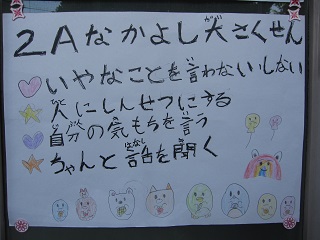 2Aなかよし大さくせん
いやなことを言わない・しない
人にしんせつにする
自分の気もちを言う
ちゃんと話を聞く